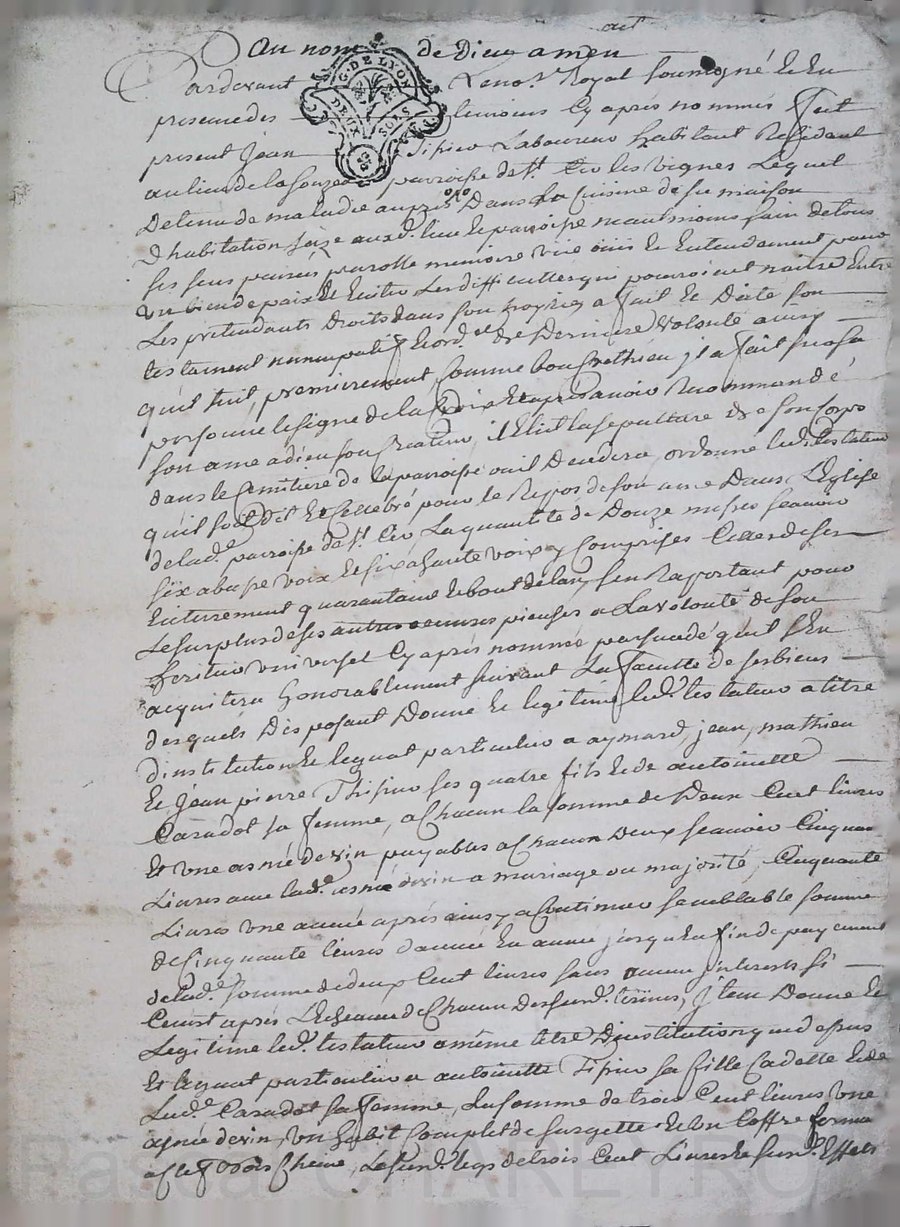 au nom de Dieu amen
Pardevant Le no.re Royal soussigné et en
presence des temoins cy après nommés fut
present Jean Tipier Laboureur habitant Residant
au lieu de la paroisse de St. les vignes Lequel
Detenu de maladie Dans La Cuisine de sa maison
D'habitation size aux d. lieu et paroisse neautmoins sain de tous
ses sens parolle memoire vüe ouïe et Entendement pour
un bien de paix et Eviter Les difficultes qui pourroient naitre Entre
Les pretendants Droits dans son hoyrie a fait et Dicté son
testament nuncupatif et de Derniere volonté ainsy
qu'il suit premierement comme bon Chrethien il a fait sur sa
personne le signe de la Croix et après avoir Recommandé
son ame a dieu son Createur, il Elit la sepulture de son Corps
dans le Cemitiere de la paroisse ou il Decedera, ordonne led. testateur
qu'il soit Dit et Cellebré pour le Repos de son ame Dans L'Eglise
de lad.e paroisse de St. La quantité de Douze messes scavoir
six a basse voix et six a haute voix y comprises Celles de son
Enterrement quarantaine et bout de lan, sen Raportant pour
Le surplus de ses autres oeuvres pieuses a La volonté de son
heritier universel Cy après nommé persuadé qu'il s'En
acquitera honorablement suivant La faculté de ses biens
desquels Disposant Donne et legitime led. testateur a titre
d'institution et legnat particulier a aymard, jean, mathieu
et Jean pierre Thipier ses quatre fils et de antoinette
Caradot sa femme, a Chacun la somme de Deux Cent livres
et une asnée de vin payables a Chacun Deux scavoir Cinquante
Livres avec lad.e asnée de vin a mariage ou majorité, Cinquante
Livres une année après ainsy a Continuer semblable somme
de Cinquante livres d'année En année jusqu'en fin de payement
de lad.e somme de deux Cent livres sans aucun interests si
Ce n'est après L'Echeance de Chacun Des surd. termes, Item Donne et
Legitime led. testateur a même titre D'institution que dessus
et legnat particulier a antoinette Tipier sa fille Cadette et de
Lad.e Caradot sa femme, La somme de trois Cent livres une
asnée de vin, un habit Complet de sargette et un Coffre fermant
a Clef bois Chene, Le surd. legs de trois Cent Livres et surd. Effets
G. DE LYON
DEUX SOLS
Pascal CHAREYRON